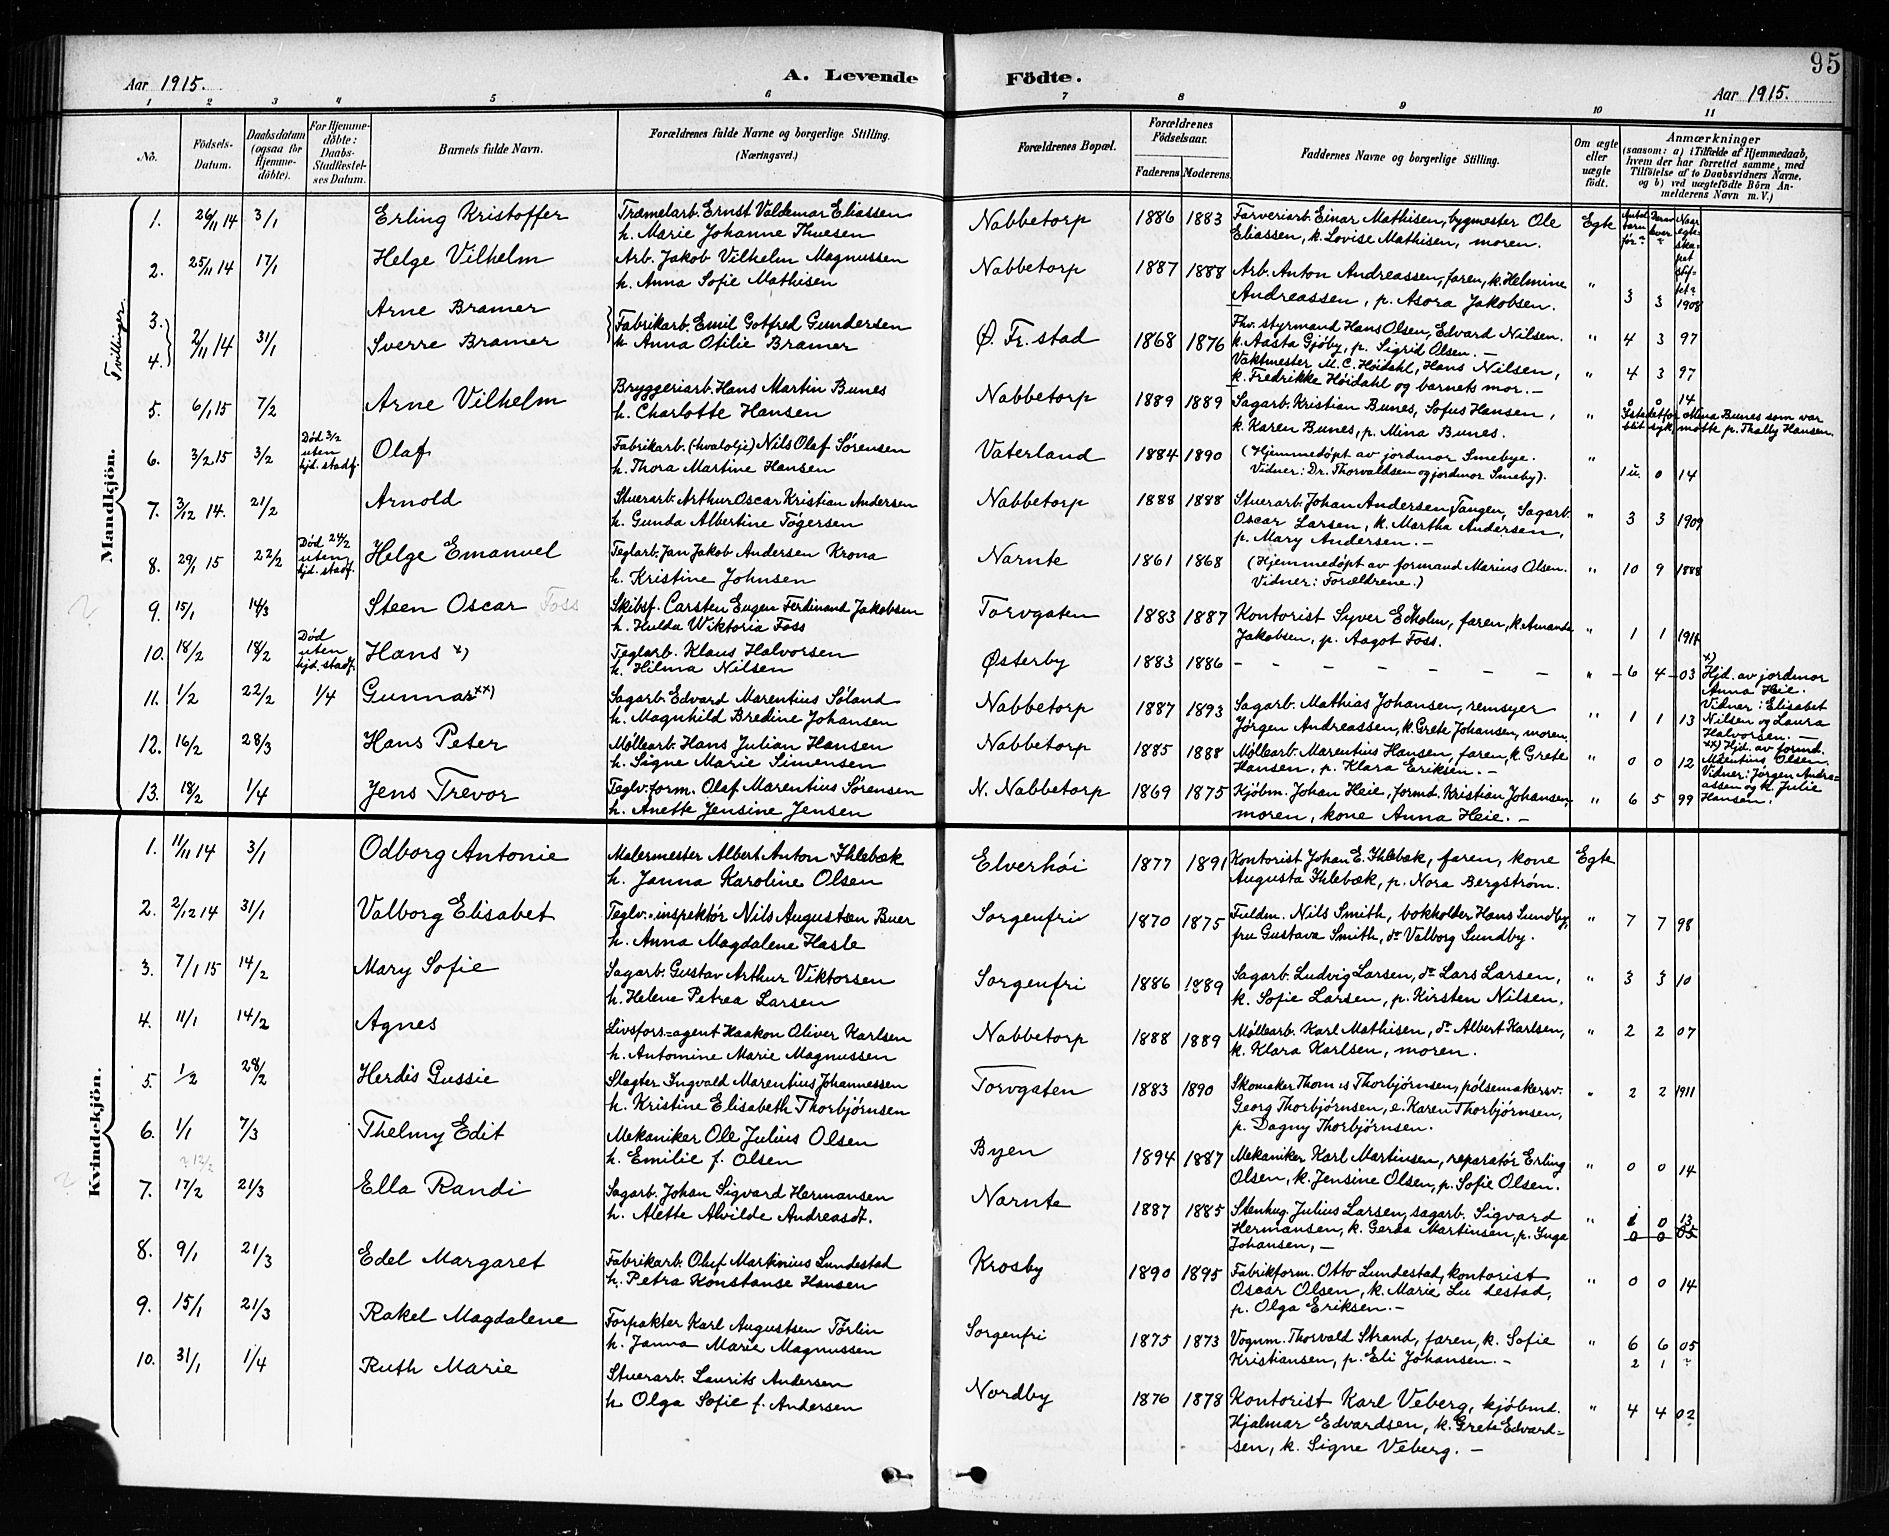 95
Aar 1915.
A. Levende Födte.
Aar 1915.
1 2 3 4 5 6 7 8 9 10 11
No.
Födsels-Datum.
Daabsdatum (ogsaa for Hjemme-döbte).
For Hjemme-döbte: Daabs-Stadfæstel-ses Datum.
Barnets fulde Navn.
Forældrenes fulde Navne og borgerlige Stilling.
(Næringsvei.)
Forældrenes Bopæl.
Forældrenes Födselsaar.
Faderens
Moderens
Faddernes Navne og borgerlige Stilling.
Om ægte eller uægte födt.
Anmærkninger
(saasom: a) i Tilfælde af Hjemmedaab, hvem der har forrettet samme, med Tilföielse af to Daabsvidners Navne, og b) ved uægtefödte Börn An-melderens Navn m. V.)
Mandkjön.
Tvillinger
1. 26/11 14 3/1 Erling Kristoffer
Træmelarb. Ernst Valdemar Eliassen
h. Marie Johanne Thuesen
Nabbetorp 1886 1883
Farveriarb. Einar Mathisen, bygmester Ole
Eliassen, k. Lovise Mathisen, moren.
Egte
2. 25/11 14 17/1 Helge Vilhelm
Arb. Jakob Vilhelm Magnussen
h. Anna Sofie Mathisen
Nabbetorp 1887 1888
Arb. Anton Andreassen, faren, k. Helmine
Andreassen, p. Asora Jakobsen.
" 3 3 1908
3. Arne Bramer
4. 2/11 14 31/1 Sverre Bramer
Fabrikarb. Emil Gotfred Gundersen
h. Anna Otilie Bramer
Ø. Fr.stad 1868 1876
Fhv. styrmand Hans Olsen, Edvard Nilsen.
k. Aasta Gjøby, p. Sigrid Olsen. —
" 4 3 97
Vaktmester M. C. Høidahl, Hans Nilsen,
k. Fredrikke Høidahl og barnets mor. —
" 4 3 97
5. 6/1 15 7/2 Arne Vilhelm
Bryggeriarb. Hans Martin Bunes
h. Charlotte Hansen
Nabbetorp 1889 1889
Sagarb. Kristian Bunes, Sofus Hansen,
k. Karen Bunes, p. Mina Bunes.
" 0 0 14
Istedetfor Mina Bunes som var
blit syk, møtte p. Thalby Hansen.
6. 3/2 15 3/2
Død 3/2 uten hjd. stadf.
Olaf
Fabrikarb. (hvalolje) Nils Olaf Sørensen
h. Thora Martine Hansen
Vaterland 1884 1890
(Hjemmedøpt av jordmor Smebye.
Vidner: Dr. Thorvaldsen og jordmor Smeby).
" 1u. 0 14
7. 3/12 14. 21/2 Arnold
Stuerarb. Arthur Oscar Kristian Andersen
h. Gunda Albertine Tøgersen
Nabbetorp 1888 1888
Stuerarb. Johan Andersen Tangen, Sagarb.
Oscar Larsen, k. Martha Andersen,
p. Mary Andersen. —
" 3 3 1909
8. 29/1 15 22/2
Død 24/2 uten hjd. stadf.
Helge Emanuel
Teglarb. Jan Jakob Andersen Krona
h. Kristine Johnsen
Narnte 1861 1868
(Hjemmedøpt av formand Marius Olsen.
Vidner: Forældrene.)
" 10 9 1888
9. 15/1 14/3 Steen Oscar Foss
Skibsf. Carsten Eugen Ferdinand Jakobsen
h. Hulda Wiktoria Foss
Torvgaten 1883 1887
Kontorist Syver Edholm, faren, k. Amanda
Jakobsen, p. Aagot Foss.
" 1 1 1914
10. 18/2 18/2
Død uten hjd. stadf.
Hans x)
Teglarb. Klaus Halvorsen
h. Hilma Nilsen
Østerby 1883 1886
" 6 4 03
x) Hjd. av jordmor
Anna Heie.
Vidner: Elisabet
Nilsen og Laura
Halvorsen. —
11. 1/2 22/2 1/4 Gunnar xx)
Sagarb. Edvard Marentius Søland
h. Magnhild Bredine Johansen
Nabbetorp 1887 1893
Sagarb. Mathias Johansen, remsyer
Jørgen Andreassen, k. Grete Johansen, moren.
" 1 1 13
12. 16/2 28/3 Hans Peter
Møllearb. Hans Julian Hansen
h. Signe Marie Simensen
Nabbetorp 1885 1888
Møllearb. Marentius Hansen, faren, k. Grete
Hansen, p. Klara Eriksen. —
" 0 0 12
xx) Hjd. av formd.
Marentius Olsen.
Vidner: Jørgen Andre-
assen og k. Julie
Hansen.
13. 18/2 1/4 Jens Trevor
Teglv.form. Olaf Marentius Sørensen
h. Anette Jensine Jensen
N. Nabbetorp 1869 1875
Kjøbm. Johan Heie, formd. Kristian Johansen,
moren, kone Anna Heie. —
" 6 5 99
Kvindekjön.
1. 11/11 14 3/1 Odborg Antonie
Malermester Albert Anton Ihlebæk
h. Janna Karoline Olsen
Elverhøi 1877 1891
Kontorist Johan E. Ihlebæk, faren, kone
Augusta Ihlebæk, p. Nora Bergstrøm.
Egte
2. 2/12 14 31/1 Valborg Elisabet
Teglv.-inspektør Nils Augustsen Buer
h. Anna Magdalene Hasle
Sorgenfri 1870 1875
Fuldm. Nils Smith, bokholder Hans Sundby,
fru Gustava Smith, do Valborg Sundby.
" 7 7 98
3. 7/1 15 14/2 Mary Sofie
Sagarb. Gustav Arthur Viktorsen
h. Helene Petrea Larsen
Sorgenfri 1886 1889
Sagarb. Ludvig Larsen, do Lars Larsen,
k. Sofie Larsen, p. Kirsten Nilsen.
" 3 3 10
4. 11/1 14/2 Agnes
Livsfors=agent Haakon Oliver Karlsen
h. Antomine Marie Magnussen
Nabbetorp 1888 1889
Møllearb. Karl Mathisen, do Albert Karlsen,
k. Klara Karlsen, moren.
" 2 2 07
5. 1/2 28/2 Herdis Gussie
Slagter Ingvald Marentius Johannessen
h. Kristine Elisabeth Thorbjørnsen
Torvgaten 1883 1890
Skomaker Thomas Thorbjørnsen, pølsemakersv.
Georg Thorbjørnsen, e. Karen Thorbjørnsen,
p. Dagny Thorbjørnsen.
" 2 2 1911
6. 1/1 7/3 Thelmy Edit
Mekaniker Ole Julius Olsen
h. Emilie f. Olsen
Byen 1894 1887
Mekaniker Karl Martinsen, reparatør Erling
Olsen, k. Jensine Olsen, p. Sofie Olsen.
" 0 0 14
? 12/2
7. 17/2 21/3 Ella Randi
Sagarb. Johan Sigvard Hermansen
h. Alette Alvilde Andreasdt.
Narnte 1887 1885
Stenhug. Julius Larsen, sagarb. Sigvard
Hermansen, k. Gerda Martinsen, p. Inga
Johansen, —
" 1 0 13
0 0 05
8. 9/1 21/3 Edel Margaret
Fabrikarb. Oluf Martinius Lundestad
h. Petra Konstanse Hansen
Krosby 1890 1895
Fabrikform. Otto Lundestad, kontorist
Oscar Olsen, k. Marie Lu destad,
p. Olga Eriksen. —
" 0 0 14
9. 15/1 21/3 Rakel Magdalene
Forpakter Karl Augustsen Tørlin
h. Janna Marie Magnussen
Sorgenfri 1875 1873
Vognm. Thorvald Strand, faren, k. Sofie
Kristiansen, p. Eli Johansen. —
" 6 6 05
2 1 ?
10. 31/1 1/4 Ruth Marie
Stuerarb. Laurits Andersen
h. Olga Sofie f. Andersen
Nordby 1876 1878
Kontorist Karl Veberg, kjøbmd.
Hjalmar Edvardsen, k. Grete Edvard=
sen, k. Signe Veberg. —
" 4 4 02